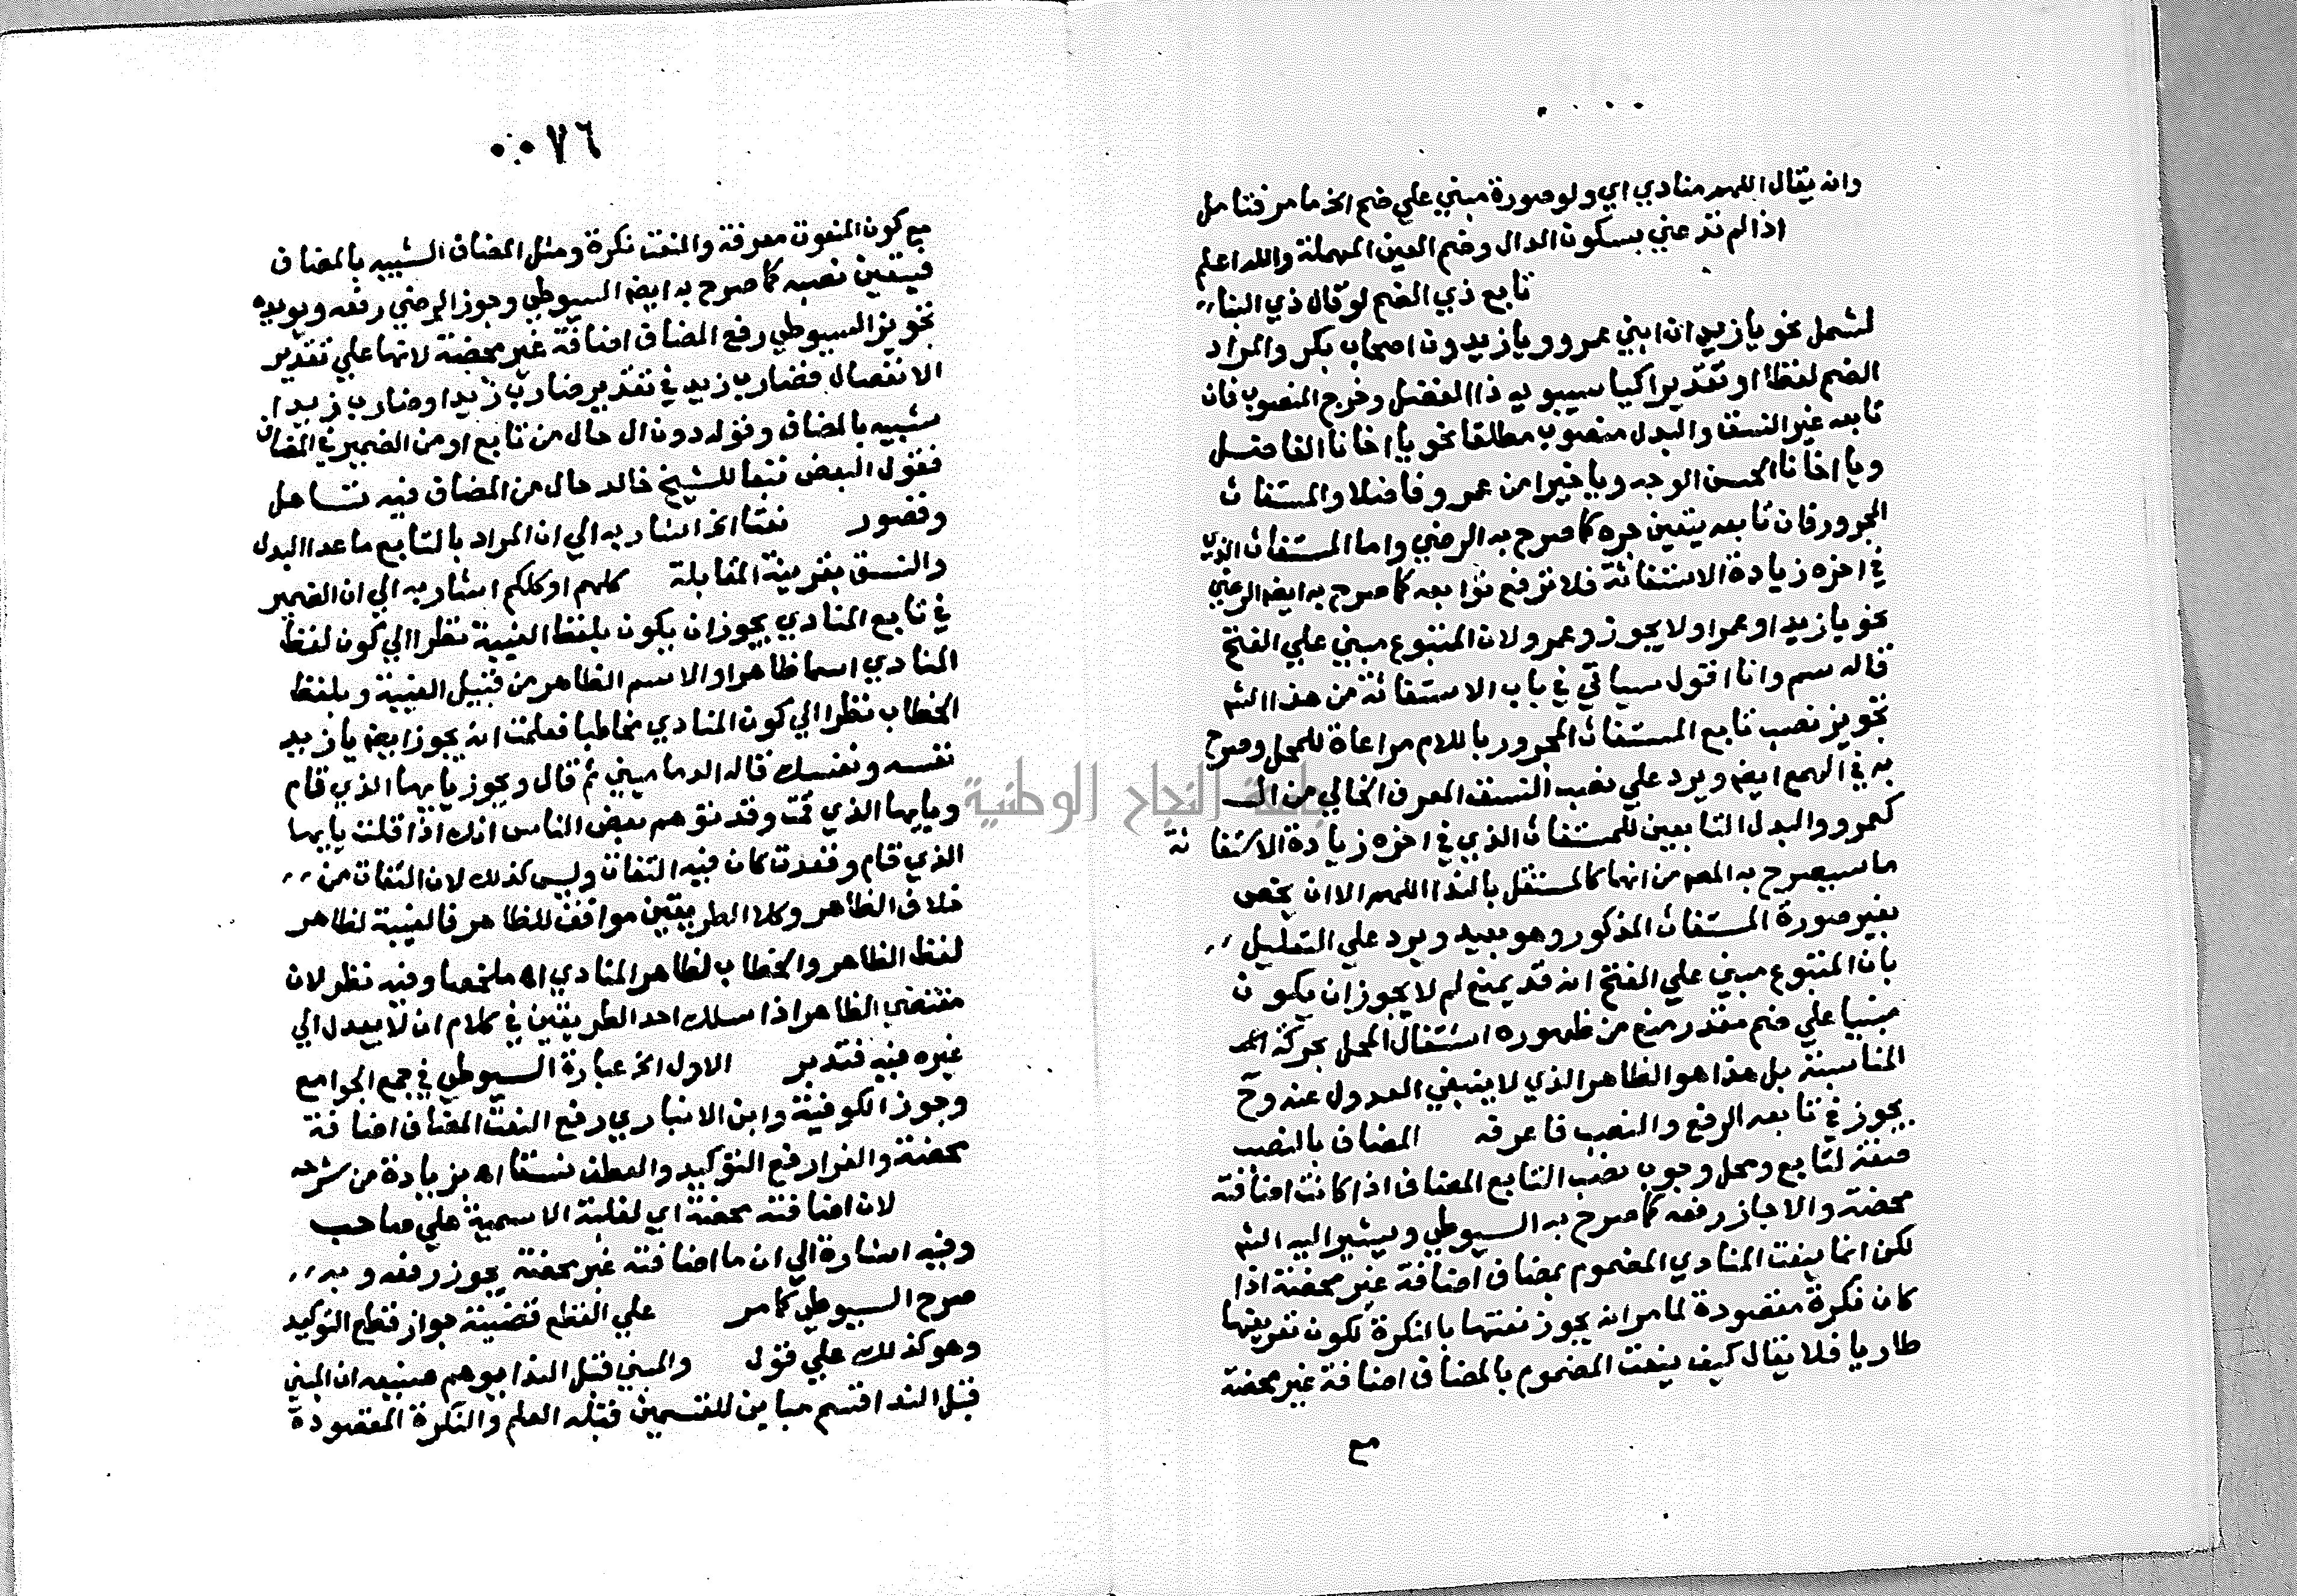 وانه يقال اللهم منادي اي ولو صورة مبني علي ضم الخ ما مر فتامل
اذا لم تدعني بسكون الدال وضم العين المهملة والله اعلم
تابع ذي الضم لو قال ذي البنا
لشمل نحو يا زيدان ابني عمرو ويا زيدون اصحاب بكر والمراد
الضم لفظا او تقديرا كيا سيبويه ذا الفضل وخرج المنصوب فان
تابعه غير النسق والبدل منصوب مطلقا نحو يا اخانا الفاضل
ويا اخانا الحسن الوجه ويا خيرا من عمرو فاضلا والمستغاث
المجرور فان تابعه يتعين جره كما صرح به الرضي واما المستغاث الذي
في اخره زيادة الاستغاثة فلا ترفع توابعه كما صرح به ايضا الرضي
نحو يا زيدا وعمرا ولا يجوز وعمرو لان المتبوع مبني علي الفتح
قاله سم وانا اقول سياتي في باب الاستغاثة من هذا الشم
تجويز نصب تابع المستغاث المجرور باللام مراعاة للمحل وصرح
به في الهمع ايضا ويرد علي نصب النسق المعرف الخالي من ال
كعمرو والبدل التابعين للمستغاث الذي في اخره زيادة الاستغاثة
ما سيصرح به المصم من انهما كالمستقل بالندا اللهم الا ان يخص
بغير صورة المستغاث المذكور وهو بعيد ويرد علي التعليل
بان المتبوع مبني علي الفتح انه قد يمنع لم لا يجوز ان يكون
مبنيا علي ضم مقدر منع من ظهوره اشتغال المحل بحركة
المناسبة بل هذا هو الظاهر الذي لا ينبغي العدول عنه وح
يجوز في تابعه الرفع والنصب فاعرفه المضاف بالنصب
صفة لتابع ومحل وجوب نصب التابع المضاف اذا كانت اضافته
محضة والا جاز رفعه كما صرح به السيوطي ويشير اليه الشم
لكن انما ينعت المنادي المضموم بمضاف اضافة غير محضة اذا
كان نكرة مقصودة لما مر انه يجوز نعتها بالنكرة لكون تعريفها
طاريا فلا يقال كيف ينعت المضموم بالمضاف اضافة غير محضة
مع
٧٦
مع كون المنعوت معرفة والنعت نكرة ومثل المضاف الشبيه بالمضاف
فيتعين نصبه كما صرح به ايضا السيوطي وجوز الرضي رفعه ويويده
تجويز السيوطي رفع المضاف اضافة غير محضة لانها علي تقدير
الانفصال فضارب زيد في تقدير ضارب زيدا وضارب زيدا
شبيه بالمضاف وقوله دون ال حال من تابع او من الضمير في المضاف
فقول البعض تبعا للشيخ خالد حال من المضاف فيه تساهل
وقصور نعتا الخ اشار به الي ان المراد بالتابع ما عدا البدل
والنسق بقرينة المقابلة كلهم او كلكم اشار به الي ان الضمير
في تابع المنادي يجوز ان يكون بلفظ الغيبة نظرا الي كون لفظ
المنادي اسما ظاهرا والاسم الظاهر من قبيل الغيبة وبلفظ
الخطاب نظرا الي كون المنادي مخاطبا فعلمت انه يجوز ايضا يا زيد
نفسه ونفسك قاله الدماميني ثم قال ويجوز يا يها الذي قام
ويا يها الذي قمت وقد توهم بعض الناس انك اذا قلت يا يها
الذي قام وقعدت كان فيه التفات وليس كذلك لان التفات من
خلاف الظاهر وكلا الطريقين موافق للظاهر فالغيبة لظاهر
لفظ الظاهر والخطاب لظاهر المنادي اه ملخصا وفيه نظر لان
مقتضي الظاهر اذا سلك احد الطريقين في كلام ان لا يعدل الي
غيره فيه فتدبر الاول الخ عبارة السيوطي في جمع الجوامع
وجوز الكوفية وابن الانباري رفع النعت المضاف اضافة
محضة والفرا رفع التوكيد والعطف نسقا اه بزيادة من شرحه
لان اضافته محضة اي لغلبة الاسمية علي صاحب
وفيه اشارة الي ان ما اضافته غير محضة يجوز رفعه وبه
صرح السيوطي كما مر علي القطع قضيته جواز قطع التوكيد
وهو كذلك علي قول والمبني قبل الندا يوهم صنيعه ان المبني
قبل الندا قسم مباين للقسمين قبله العلم والنكرة المقصودة
جامعة النجاح الوطنية